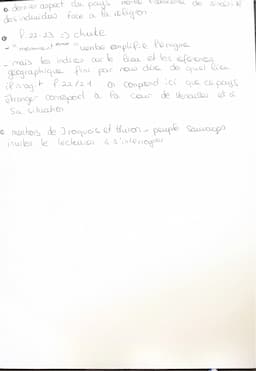 • dernier aspect du pays montre l'absence de
des individus face à la religion
• P. 22-23 => chute
- "nomment" "verbe amplifie l'énigme
- mais les indices sur le lieu et les références
géographique fini par nous dire de quel lieu
il s'agit P. 22/24 on comprend ici que ce pays
étranger correspond à la cour de Versailles et à
sa situation
• mentions de Iroquois et Huron - peuple sauvages
invite le lecteur à s'interroger